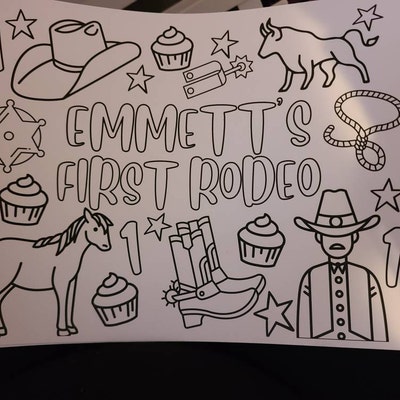 EMMETT'S
FIRST RODEO
1
1